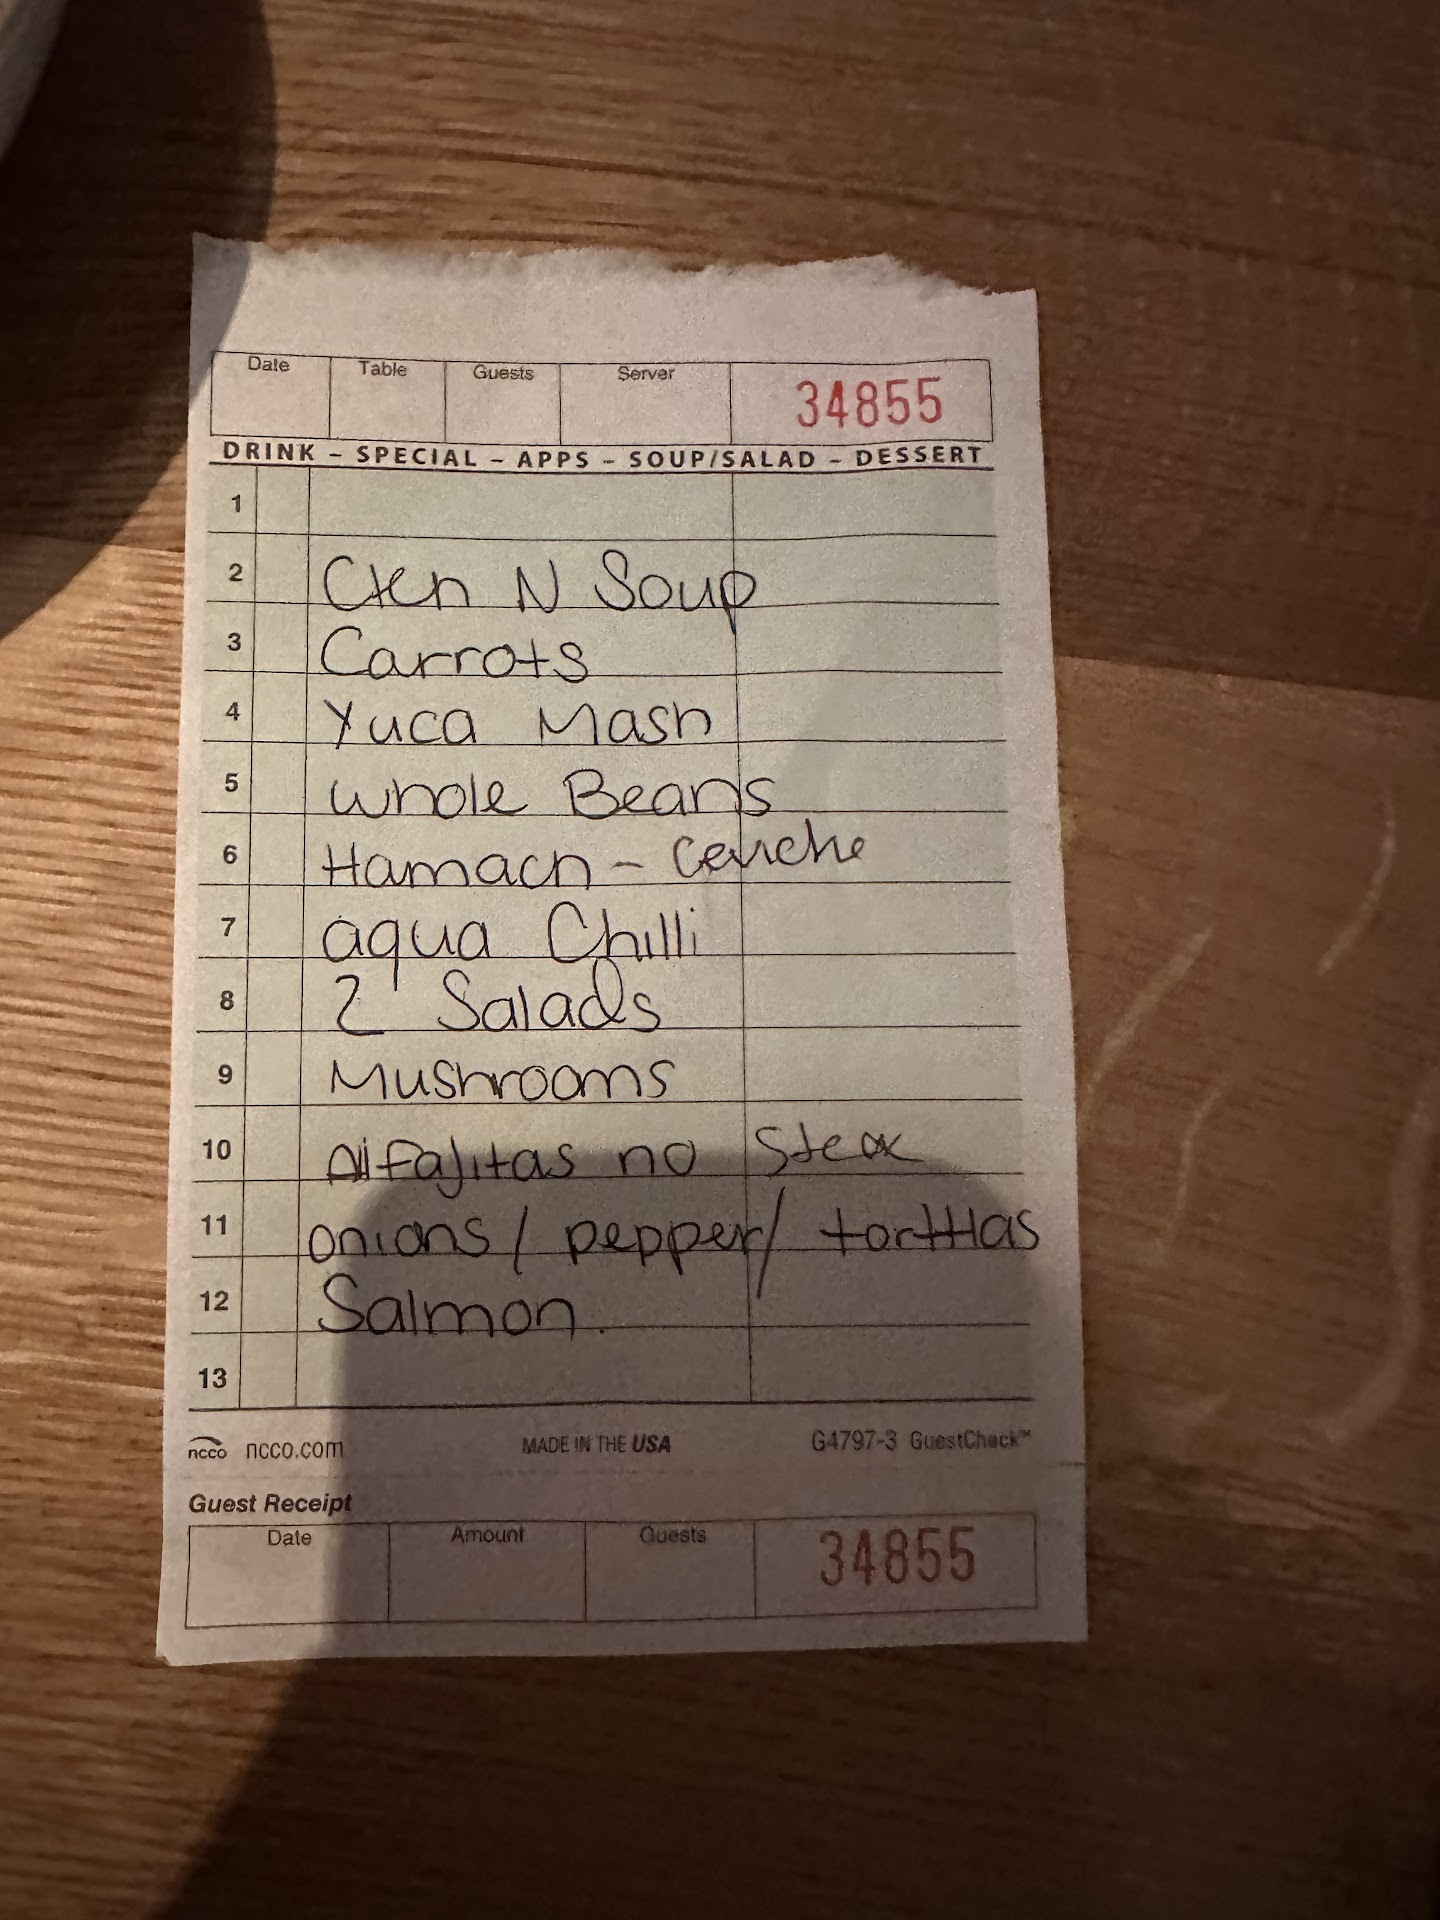 Date Table Guests Server 34855
DRINK - SPECIAL - APPS - SOUP/SALAD - DESSERT
1
2 Cken N Soup
3 Carrots
4 Yuca Mash
5 whole Beans
6 Hamachi - Ceviche
7 aqua Chilli
8 2 Salads
9 Mushrooms
10 All fajitas no Steak
11 onions / pepper / torttlas
12 Salmon.
13
ncco ncco.com MADE IN THE USA G4797-3 GuestCheck™
Guest Receipt
Date Amount Guests 34855